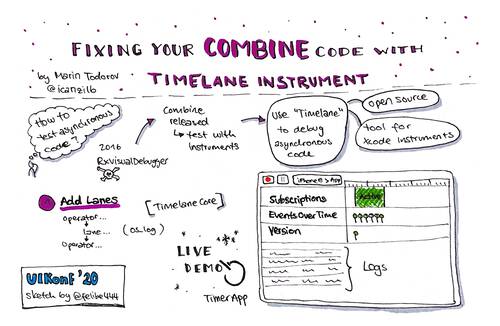 FIXING YOUR COMBINE CODE WITH
TIMELANE INSTRUMENT
by Marin Todorov
@icanzilb
How to
test asynchronous
code?
2016
RxVisualDebugger
Combine
released
↳ test with
Instruments
Use "Timelane"
to debug
asynchronous
code
open source
tool for
Xcode instruments
Add Lanes
Operator...
lane...
Operator...
[Timelane Core]
(os_log)
LIVE
DEMO
TimerApp
iPhone > App
Subscriptions
Active
Events Over Time
??????
Version
?
Logs
UIKonf '20
sketch by @felibe444